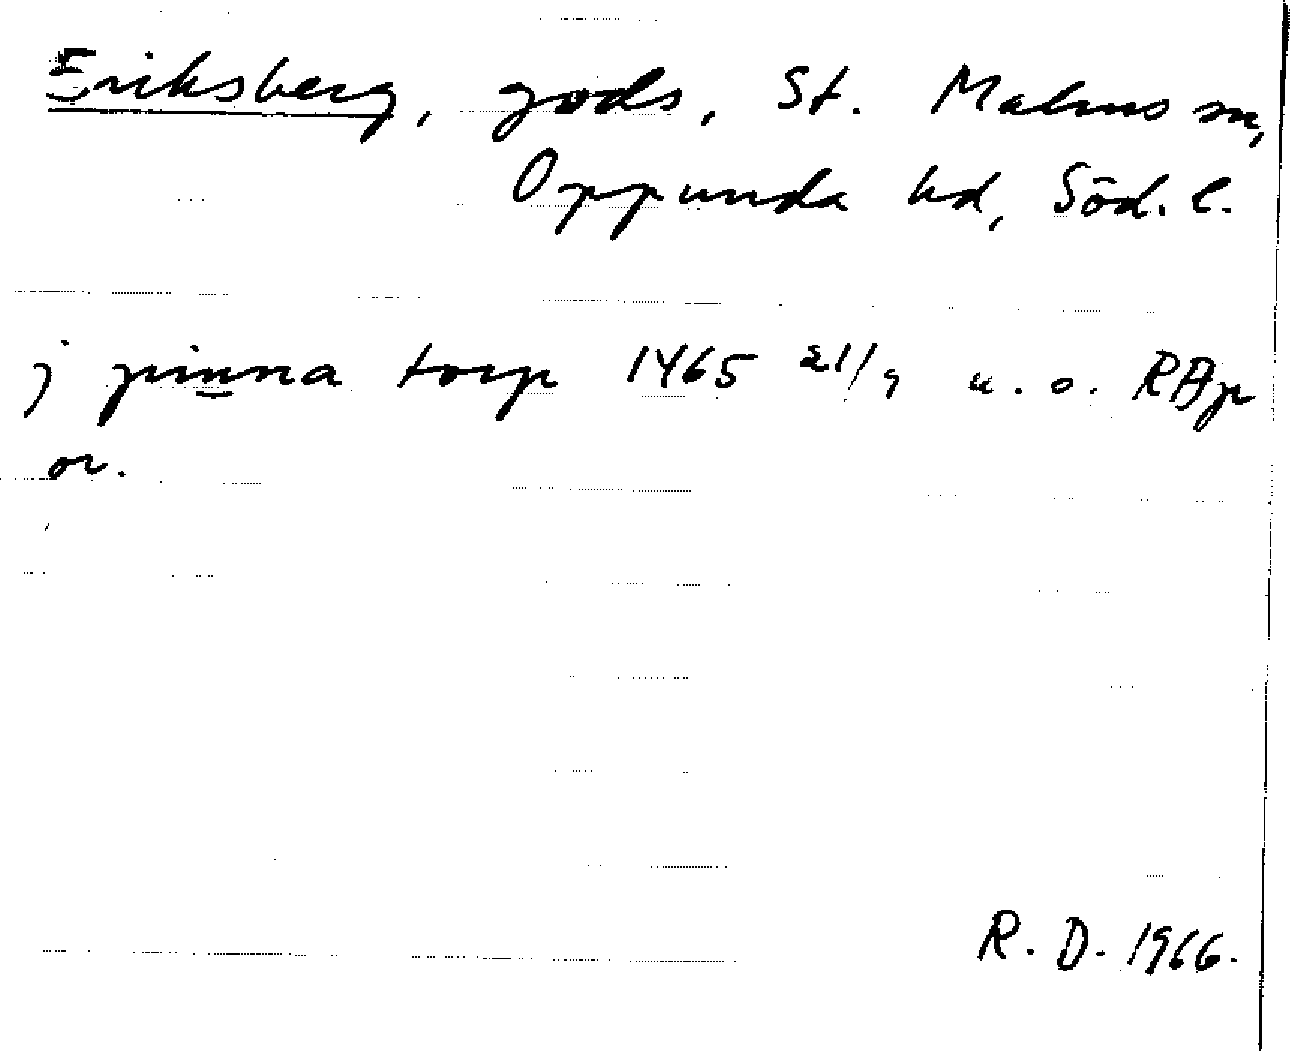 Eriksberg, gods, St. Malms sn,
Oppunda hd, Söd. l.
j pinna torp 1465 21/9 u. o. RAp
or.
R. D. 1966.